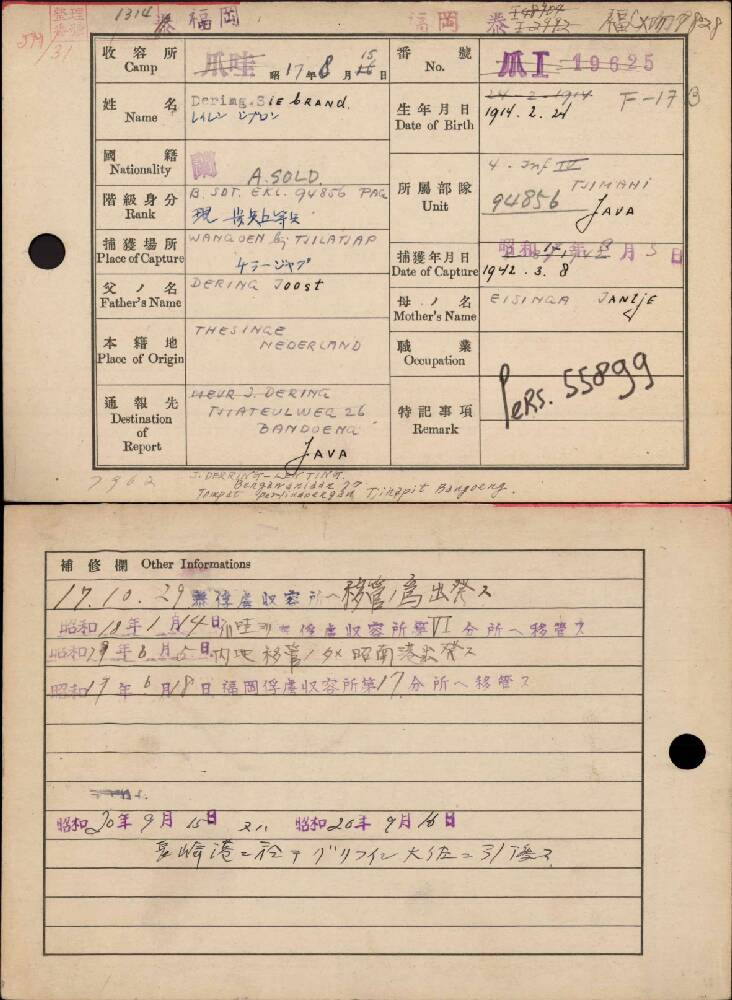 整理番號 1314 泰 福岡 福岡 泰
31
收容所 Camp 爪哇 昭17年8月15日
番號 No. 爪I 19625
姓名 Name Dering, Siebrand.
生年月日 Date of Birth 24-2-1914 1914.2.24 F-17 B
國籍 Nationality 蘭
A. SOLD.
階級身分 Rank B. SDT. EKL. 94856 PAG
所屬部隊 Unit 4. Inf IV TJIMAHI
94856 JAVA
捕獲場所 Place of Capture WANGOEN bij TJILATJAP
捕獲年月日 Date of Capture 昭和17年3月5日
1942.3.8
父ノ名 Father's Name DERING Joost
母ノ名 Mother's Name EISINGA JANTJE
本籍地 Place of Origin THESINGE
NEDERLAND
職業 Occupation
通報先 Destination of Report MEVR J. DERING
TJITATEULWEG 26
BANDOENG
JAVA
特記事項 Remark Pers. 55899
7962
補修欄 Other Informations
17.10.29 泰俘虜収容所へ移管ノ為出発ス
昭和18年1月14日 爪哇 俘虜収容所第VI分所へ移管ス
昭和19年6月5日内地移管ノタメ昭南港出発ス
昭和19年6月18日福岡俘虜収容所第17分所へ移管ス
昭和20年9月15日 昭和20年9月16日
長崎港ニ於テ 大佐ニ引渡ス